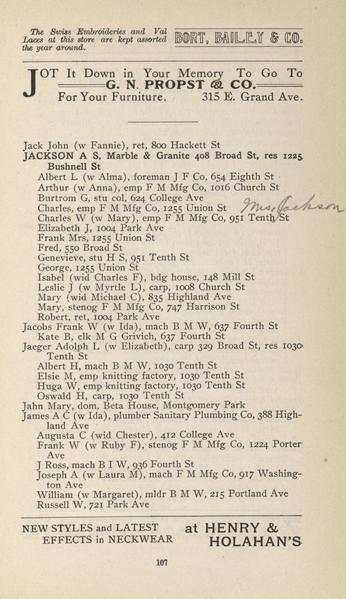 The Swiss Embroideries and Val
Laces at this store are kept assorted
the year around.
BORT, BAILEY & CO.
JOT It Down in Your Memory To Go To
G. N. PROPST & CO.
For Your Furniture. 315 E. Grand Ave.
Jack John (w Fannie), ret, 800 Hackett St
JACKSON A S, Marble & Granite 408 Broad St, res 1225
Bushnell St
Albert L (w Alma), foreman J F Co, 654 Eighth St
Arthur (w Anna), emp F M Mfg Co, 1016 Church St
Burtrom G, stu col, 624 College Ave
Charles, emp F M Mfg Co, 1255 Union St
Mrs. Jackson
Charles W (w Mary), emp F M Mfg Co, 951 Tenth St
Elizabeth J, 1004 Park Ave
Frank Mrs, 1255 Union St
Fred, 550 Broad St
Genevieve, stu H S, 951 Tenth St
George, 1255 Union St
Isabel (wid Charles F), bdg house, 148 Mill St
Leslie J (w Myrtle L), carp, 1008 Church St
Mary (wid Michael C), 835 Highland Ave
Mary, stenog F M Mfg Co, 747 Harrison St
Robert, ret, 1004 Park Ave
Jacobs Frank W (w Ida), mach B M W, 637 Fourth St
Kate B, clk M G Grivich, 637 Fourth St
Jaeger Adolph L (w Elizabeth), carp 329 Broad St, res 1030
Tenth St
Albert H, mach B M W, 1030 Tenth St
Elsie M, emp knitting factory, 1030 Tenth St
Huga W, emp knitting factory, 1030 Tenth St
Oswald H, carp, 1030 Tenth St
Jahn Mary, dom, Beta House, Montgomery Park
James A C (w Ida), plumber Sanitary Plumbing Co, 388 High-
land Ave
Augusta C (wid Chester), 412 College Ave
Frank W (w Ruby F), stenog F M Mfg Co, 1224 Porter
Ave
J Ross, mach B I W, 936 Fourth St
Joseph A (w Laura M), mach F M Mfg Co, 917 Washing-
ton Ave
William (w Margaret), mldr B M W, 215 Portland Ave
Russell W, 721 Park Ave
NEW STYLES and LATEST
EFFECTS in NECKWEAR
at HENRY &
HOLAHAN'S
107